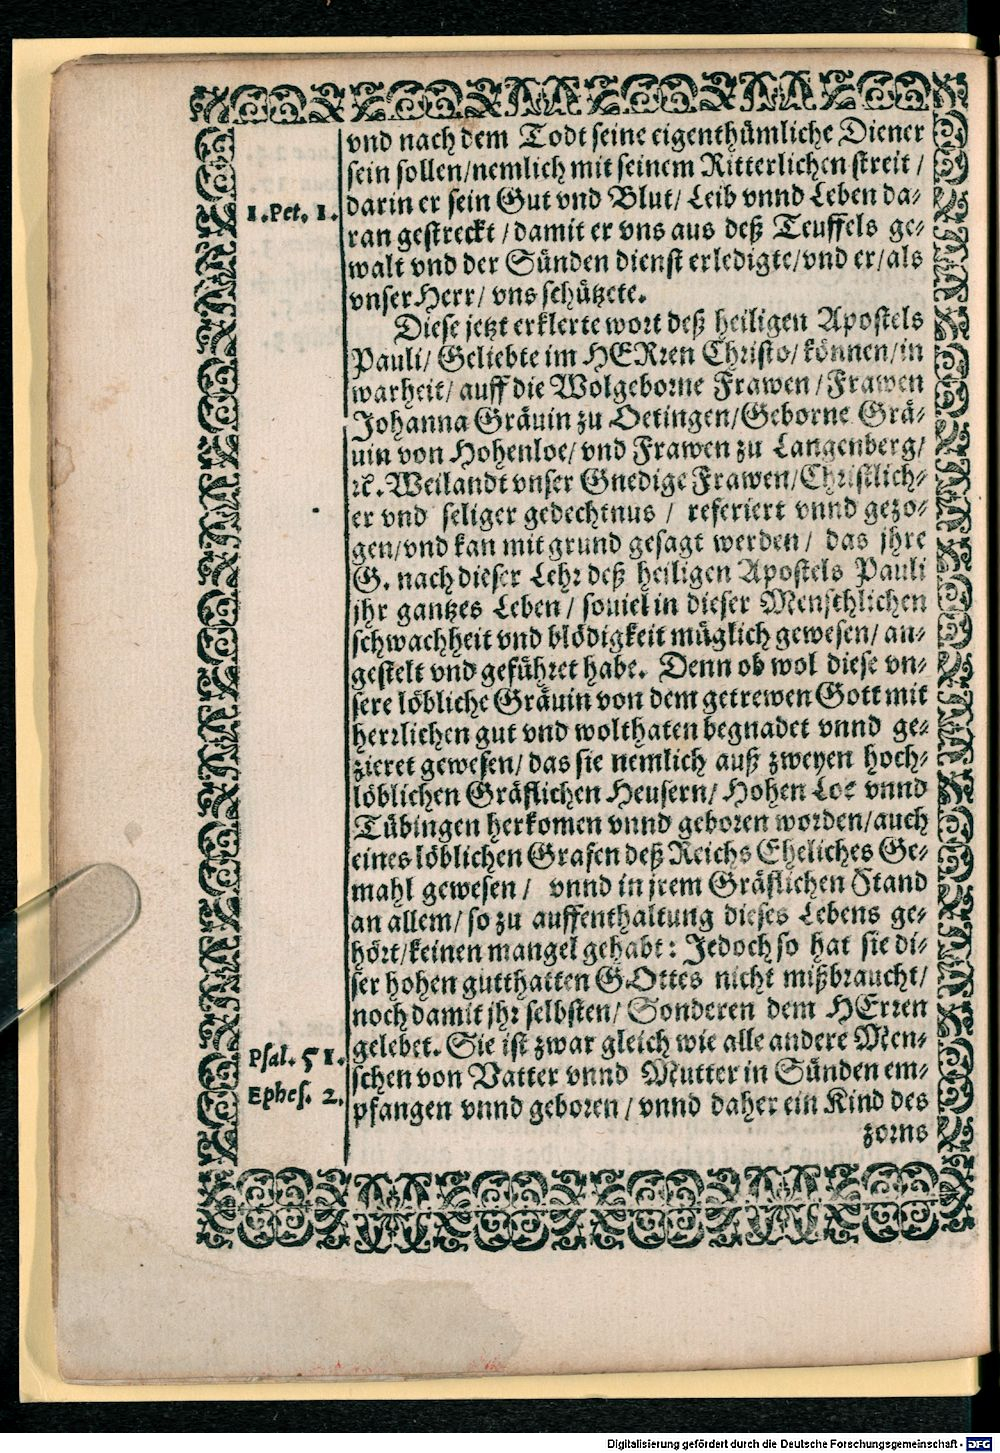 vnd nach dem Todt seine eigenthümliche Diener
sein sollen/nemlich mit seinem Ritterlichen streit /
1.Pet. 1.
darin er sein Gut vnd Blut/ Leib vnnd Leben da-
ran gestreckt /damit er vns aus deß Teuffels ge-
walt vnd der Sünden dienst erledigte/vnd er/als
vnser Herr/ vns schützete.
Diese jetzt erklerte wort deß heiligen Apostels
Pauli/ Geliebte im HERren Christo/ können/in
warheit/ auff die Wolgeborne Frawen /Frawen
Johanna Gräuin zu Oetingen/Geborne Grä-
uin von Hohenloe/ vnd Frawen zu Langenberg/
ꝛc. Weilandt vnser Gnedige Frawen/Christlich-
er vnd seliger gedechtnus / referiert vnnd gezo-
gen/vnd kan mit grund gesagt werden/ das jhre
G. nach dieser Lehr deß heiligen Apostels Pauli
jhr gantzes Leben / souiel in dieser Menschlichen
schwachheit vnd blödigkeit müglich gewesen/ an-
gestelt vnd geführet habe. Denn ob wol diese vn-
sere löbliche Gräuin von dem getrewen Gott mit
herrlichen gut vnd wolthaten begnadet vnnd ge-
zieret gewesen/ das sie nemlich auß zweyen hoch-
löblichen Gräflichen Heusern/ Hohen Loe vnnd
Tübingen herkomen vnnd geboren worden/auch
eines löblichen Grafen deß Reichs Eheliches Ge-
mahl gewesen / vnnd in jrem Gräflichen Stand
an allem/ so zu auffenthaltung dieses Lebens ge-
hört/keinen mangel gehabt: Jedoch so hat sie di-
ser hohen gutthatten GOttes nicht mißbraucht/
noch damit jhr selbsten/ Sonderen dem HErren
Psal. 51.
gelebet. Sie ist zwar gleich wie alle andere Men-
schen von Vatter vnnd Mutter in Sünden em-
Ephes. 2.
pfangen vnnd geboren / vnnd daher ein Kind des
zorns
Digitalisierung gefördert durch die Deutsche Forschungsgemeinschaft - DFG